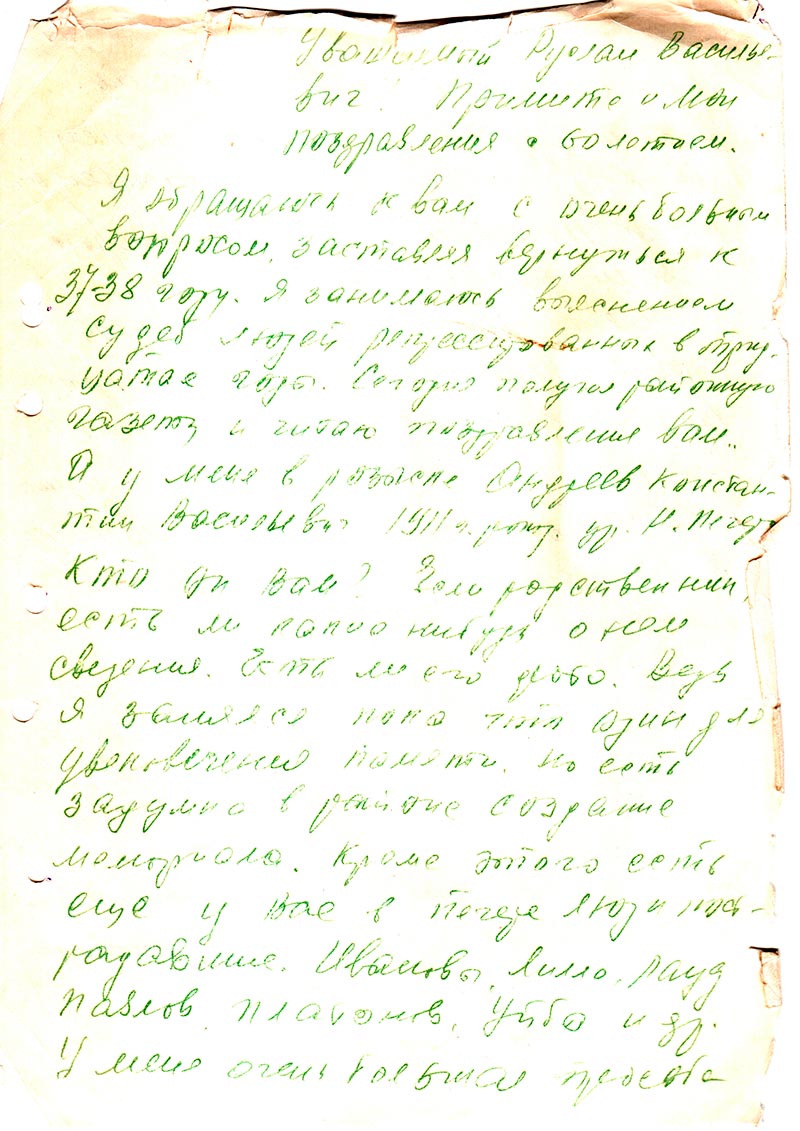 Уважаемый Руслан Василье-
вич! Примите и мои
поздравления с 60летием.
Я обращаюсь к вам с очень больным
вопросом, заставляя вернуться к
37-38 году. Я занимаюсь выяснением
судеб людей репрессированных в трид-
цатые годы. Сегодня получил районную
газету и читаю поздравления вам.
А у меня в розыске Андреев Констан-
тин Васильевич 1911 г. рожд. ур. Н. Печеры
Кто он вам? Если родственник,
есть ли какие нибудь о нем
сведения. Есть ли его фото. Ведь
я занялся пока что один для
увековечения памяти. Но есть
задумка в районе создание
мемориала. Кроме этого есть
еще у вас в Печере люди пост-
радавшие. Ивановы, Лилло, Рауд
Павлов, Платонов, Уйбо и др.
У меня очень большая просьба